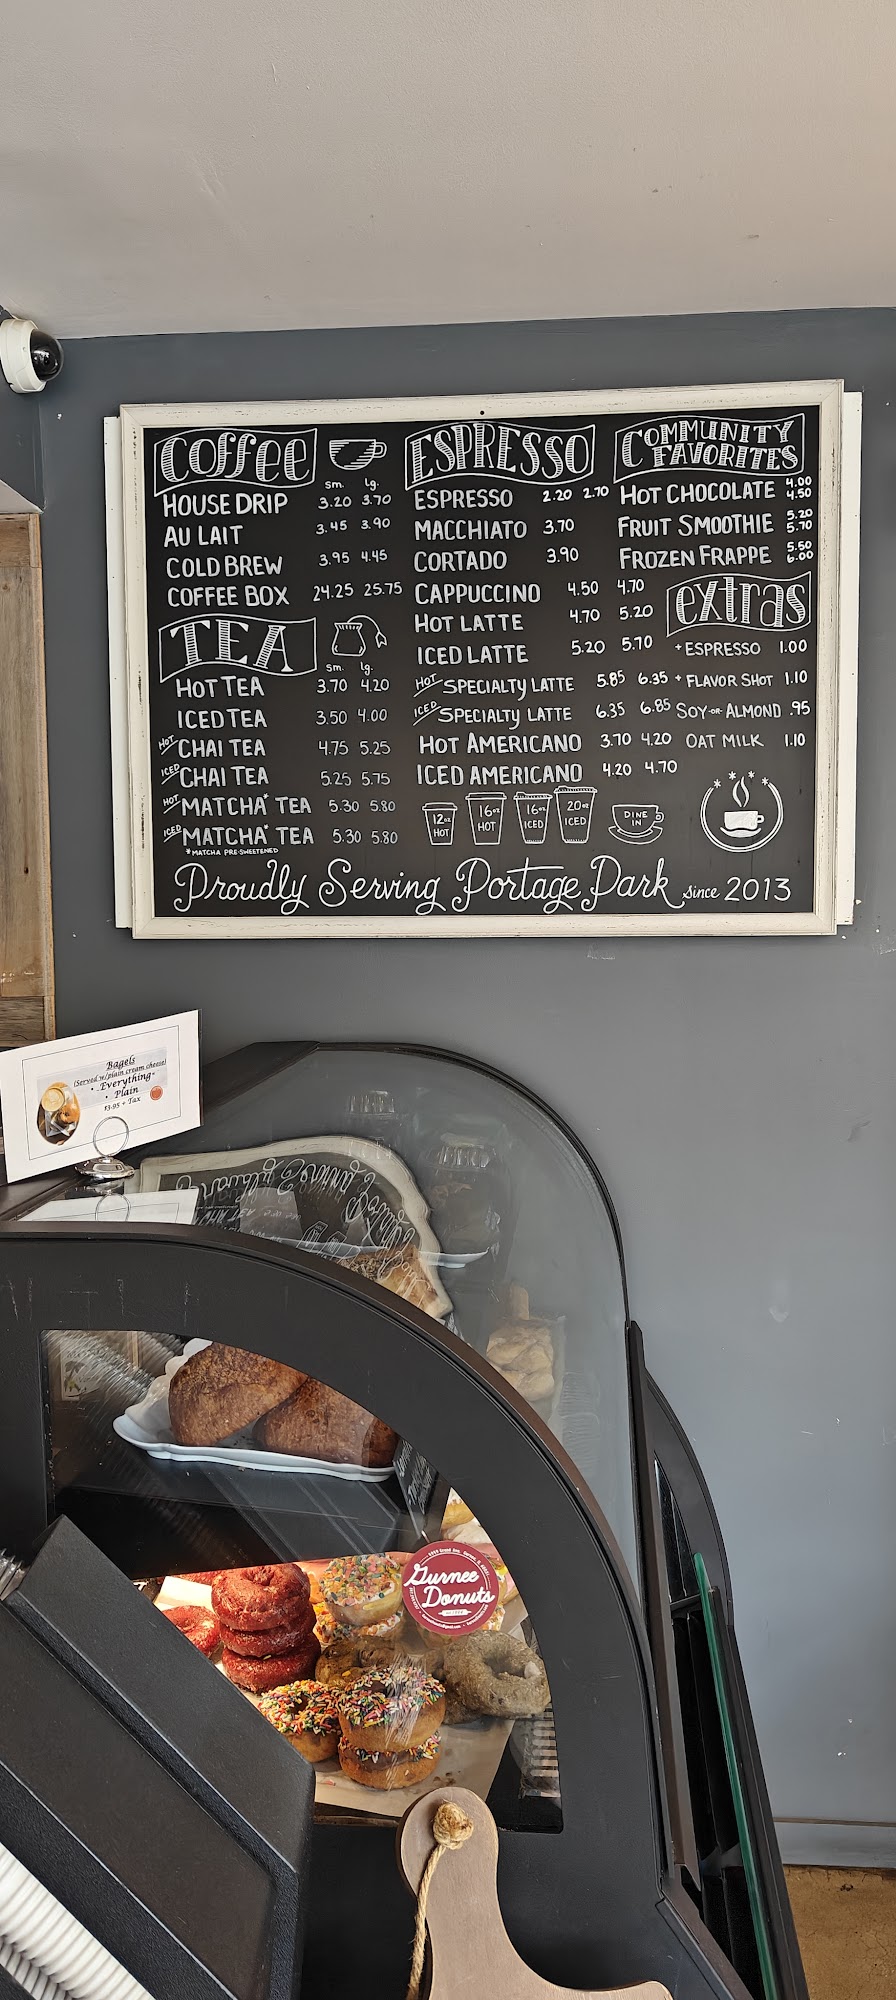 Coffee
sm. lg.
HOUSE DRIP 3.20 3.70
AU LAIT 3.45 3.90
COLD BREW 3.95 4.45
COFFEE BOX 24.25 25.75
TEA
sm. lg.
HOT TEA 3.70 4.20
ICED TEA 3.50 4.00
HOT CHAI TEA 4.75 5.25
ICED CHAI TEA 5.25 5.75
HOT MATCHA* TEA 5.30 5.80
ICED MATCHA* TEA 5.30 5.80
*MATCHA PRE-SWEETENED
ESPRESSO
ESPRESSO 2.20 2.70
MACCHIATO 3.70
CORTADO 3.90
CAPPUCCINO 4.50 4.70
HOT LATTE 4.70 5.20
ICED LATTE 5.20 5.70
HOT SPECIALTY LATTE 5.85 6.35
ICED SPECIALTY LATTE 6.35 6.85
HOT AMERICANO 3.70 4.20
ICED AMERICANO 4.20 4.70
12oz HOT
16oz HOT
16oz ICED
20oz ICED
DINE IN
COMMUNITY
FAVORITES
HOT CHOCOLATE 4.00 4.50
FRUIT SMOOTHIE 5.20 5.70
FROZEN FRAPPE 5.50 6.00
extras
+ ESPRESSO 1.00
+ FLAVOR SHOT 1.10
SOY -OR- ALMOND .95
OAT MILK 1.10
Proudly Serving Portage Park since 2013
Bagels
(Served w/plain cream cheese)
• Everything
• Plain
$3.95 + Tax
Gurnee
Donuts